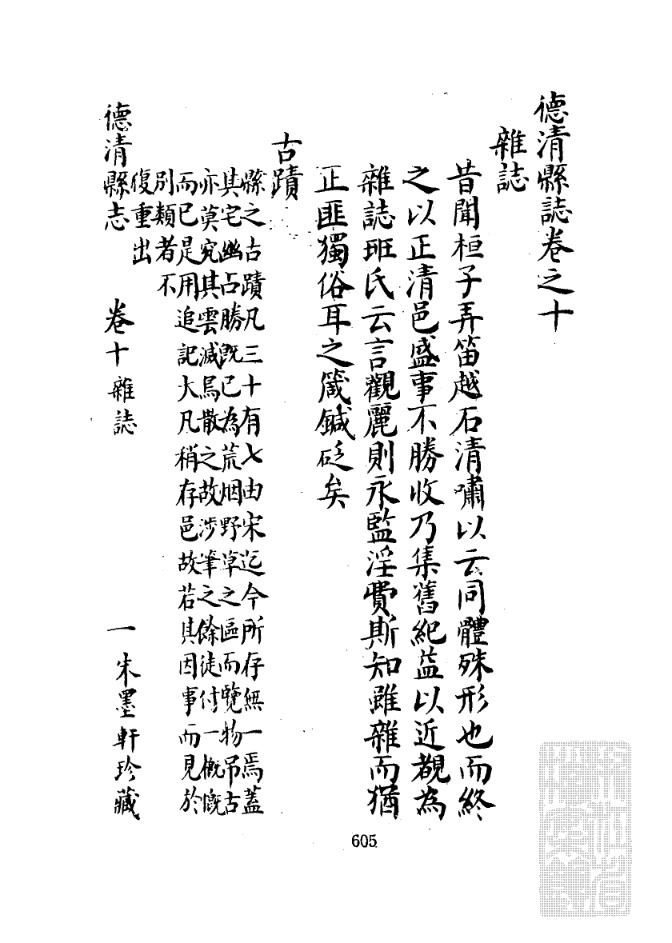 德清縣誌卷之十
雜誌
昔聞桓子弄笛越石清嘯以云同體殊形也而終
之以正清邑盛事不勝收乃集舊紀益以近覩為
雜誌班氏云言觀麗則永監淫費斯知雖雜而猶
正匪獨俗耳之箴鍼砭矣
古蹟
縣之古蹟凡三十有七由宋迄今所存無一焉蓋
其宅幽占勝既已為荒烟野草之區而覽物弔古
亦莫究其雲滅鳥散之故涉筆之餘徒付一慨慨
而已是用追記大凡稍存邑故若其因事而見於
別類者不
復重出
德清縣志 卷十雜誌 一 朱墨軒珍藏
605